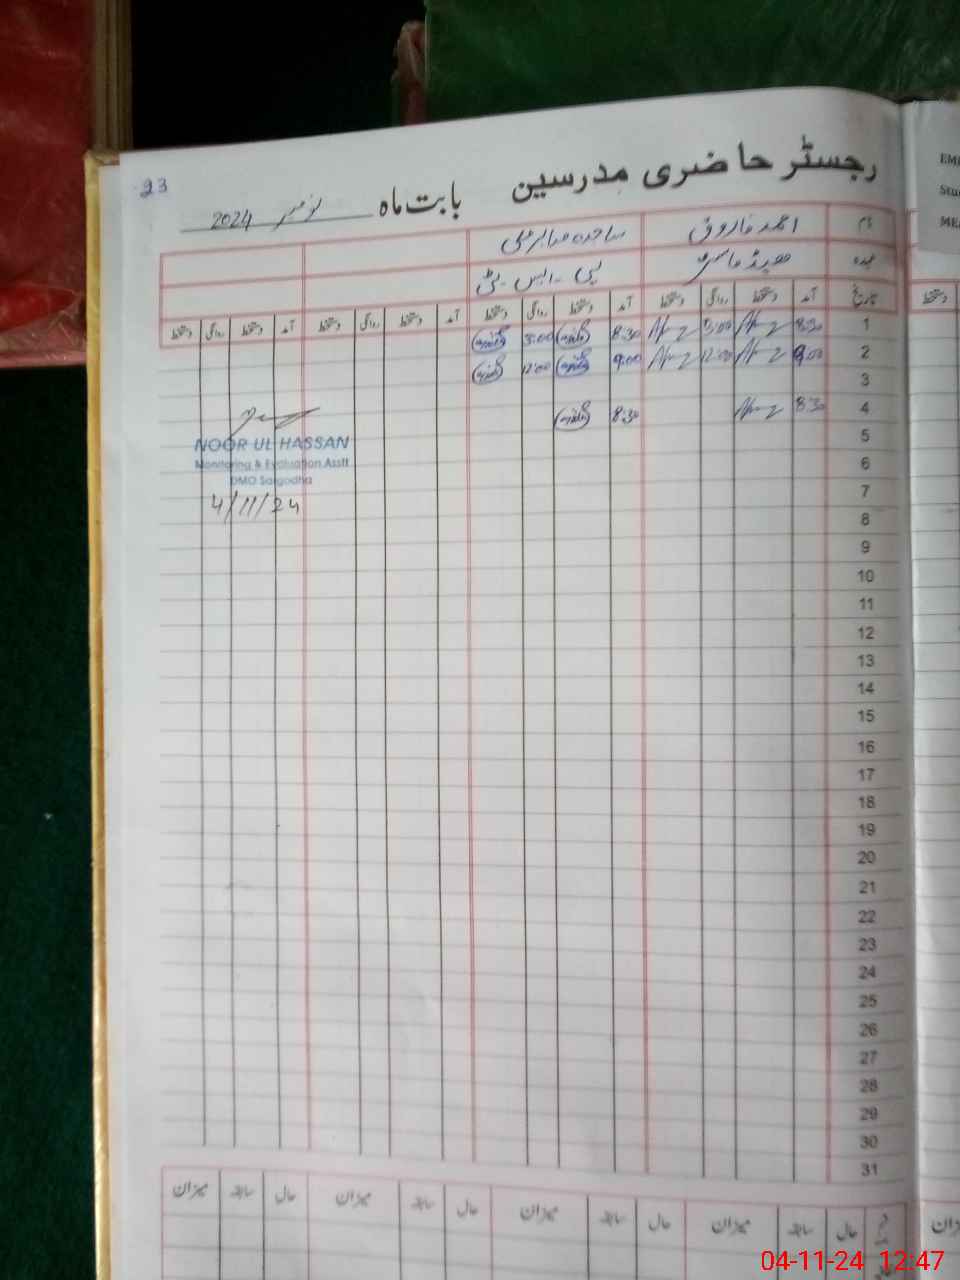 23
رجسٹر حاضری مدرسین بابت ماہ نومبر 2024
نام احمد فاروق ساجدہ صابر
عہدہ ہیڈ ماسٹر پی۔ ایس۔ ٹی
تاریخ آمد دستخط روانگی دستخط آمد دستخط روانگی دستخط آمد دستخط روانگی دستخط آمد دستخط روانگی دستخط
1 8:30 3:00 8:30 3:00
2 9:00 12:00 9:00 12:00
3
4 8:30 8:30
5
6
7
8
9
10
11
12
13
14
15
16
17
18
19
20
21
22
23
24
25
26
27
28
29
30
31
NOOR UL HASSAN
Monitoring & Evaluation Asstt
DMO Sargodha
4/11/24
حال سابقہ میزان حال سابقہ میزان حال سابقہ میزان حال سابقہ میزان
دستخط
میزان
04-11-24 12:47